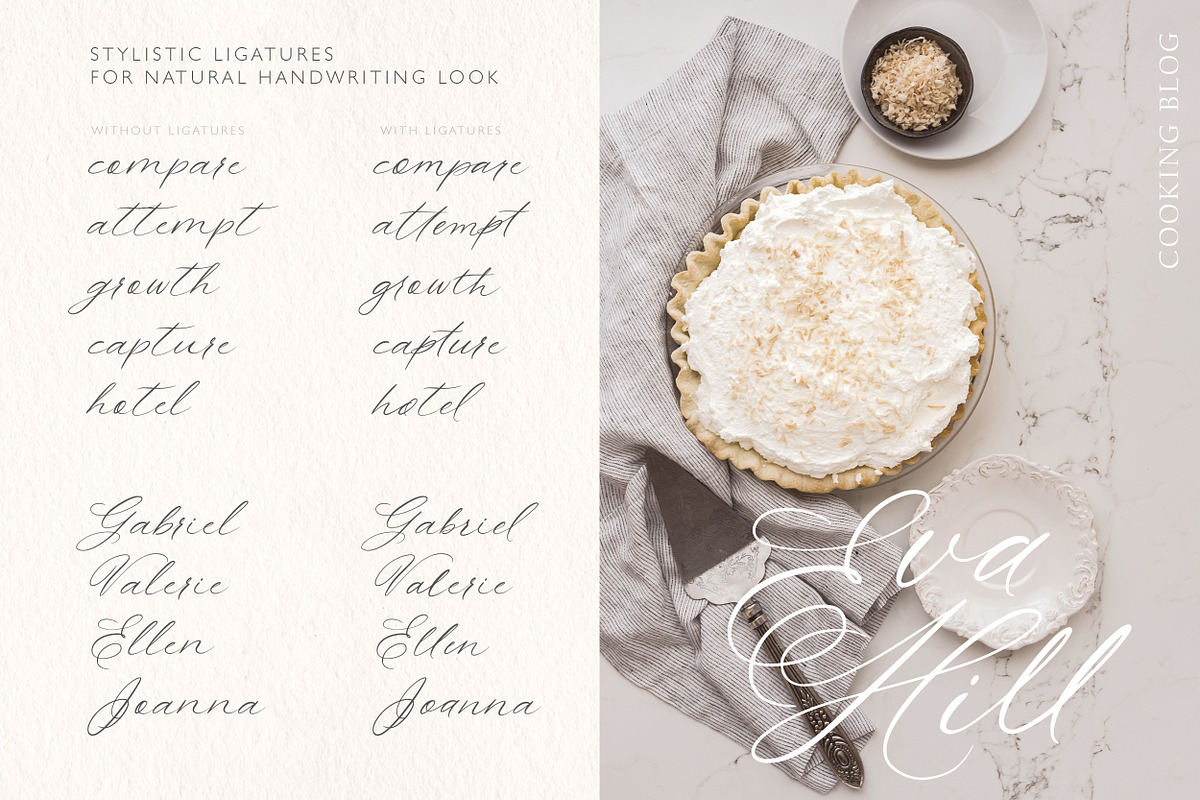 STYLISTIC LIGATURES
FOR NATURAL HANDWRITING LOOK
WITHOUT LIGATURES
compare
attempt
growth
capture
hotel
Gabriel
Valerie
Ellen
Joanna
WITH LIGATURES
compare
attempt
growth
capture
hotel
Gabriel
Valerie
Ellen
Joanna
COOKING BLOG
Eva
Hill